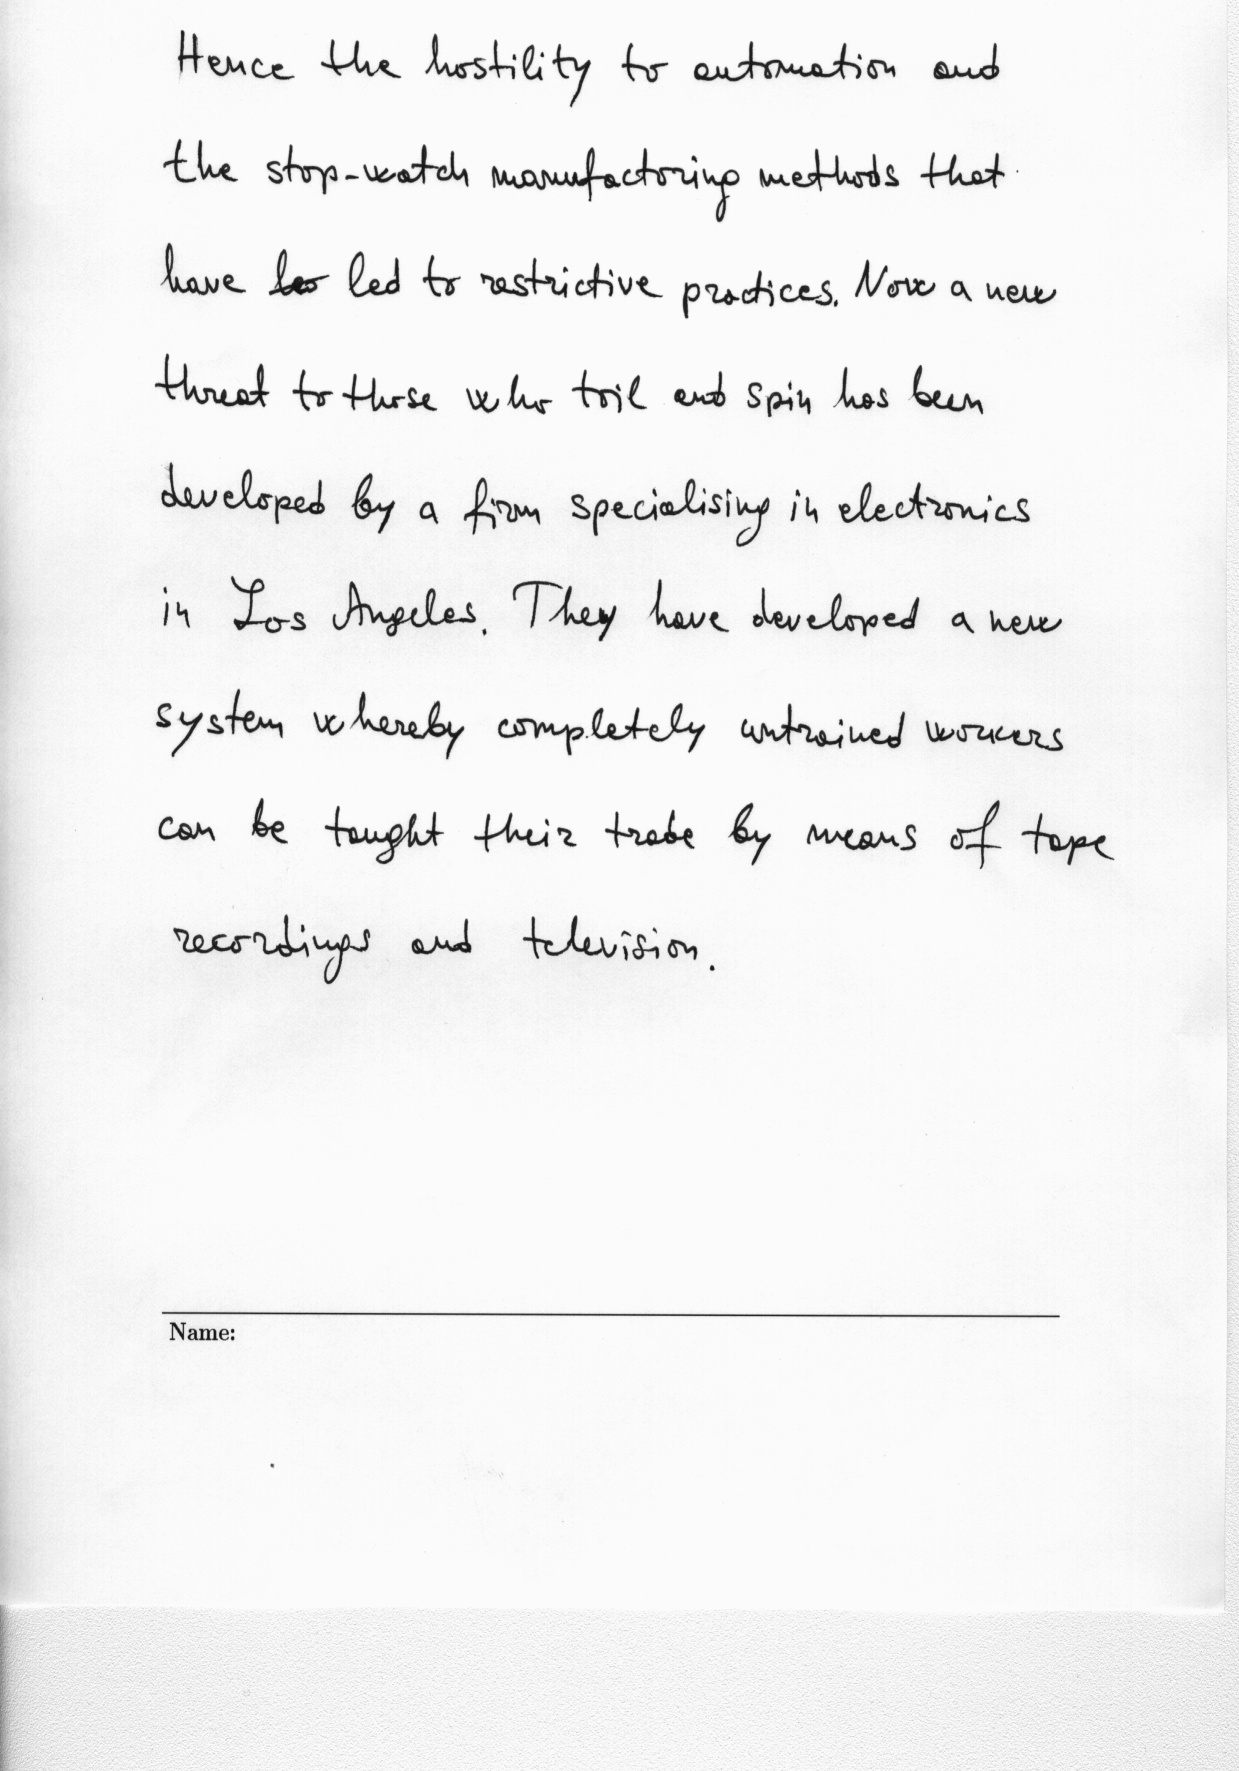 Hence the hostility to automation and
the stop-watch manufactoring methods that
have led to restrictive practices. Now a new
threat to those who toil and spin has been
developed by a firm specialising in electronics
in Los Angeles. They have developed a new
system whereby completely untrained workers
can be taught their trade by means of tape
recordings and television.
Name: